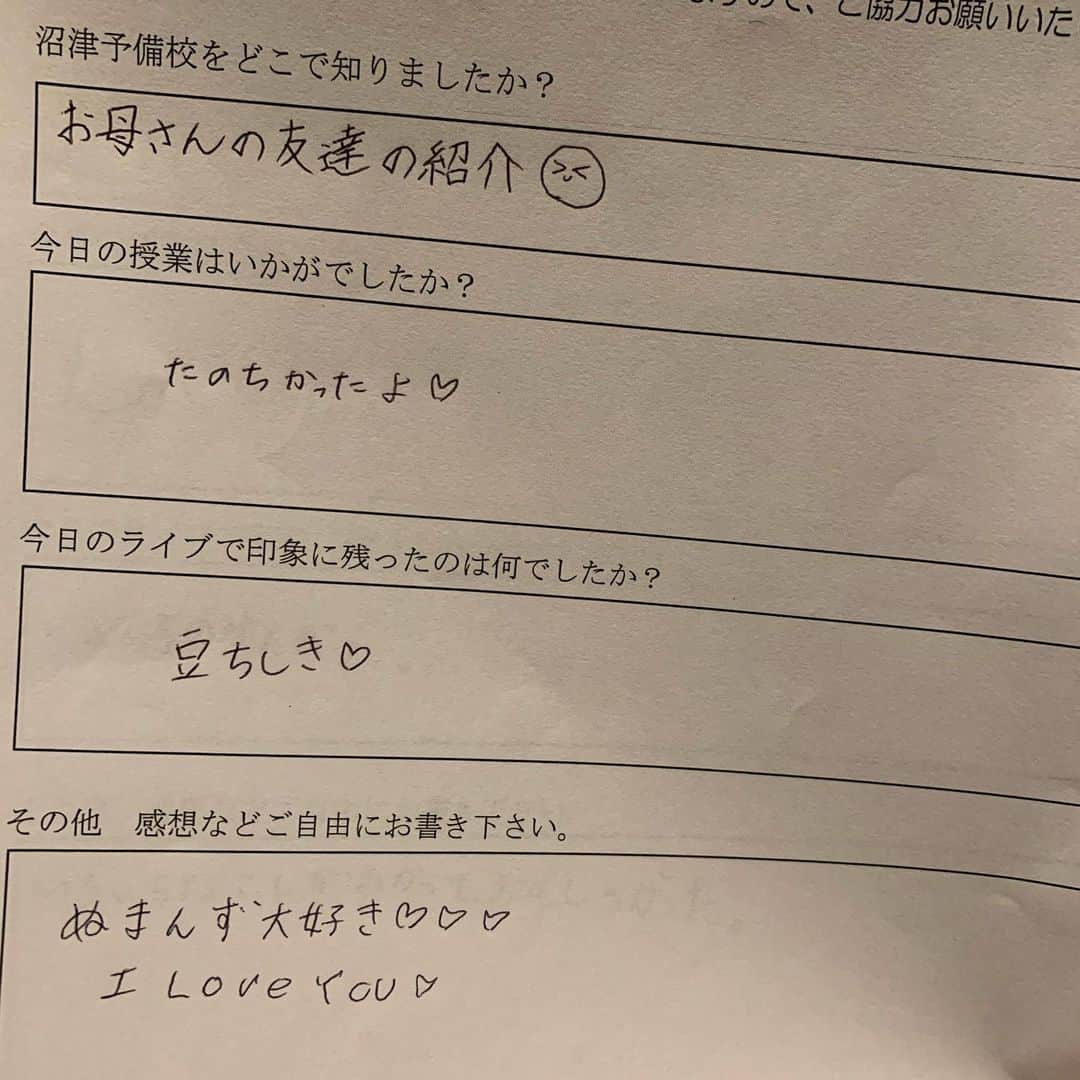 ので、ご協力お願いいた
沼津予備校をどこで知りましたか？
お母さんの友達の紹介
今日の授業はいかがでしたか？
たのちかったよ♡
今日のライブで印象に残ったのは何でしたか？
豆ちしき♡
その他　感想などご自由にお書き下さい。
ぬまんず大好き♡♡♡
I Love You♡